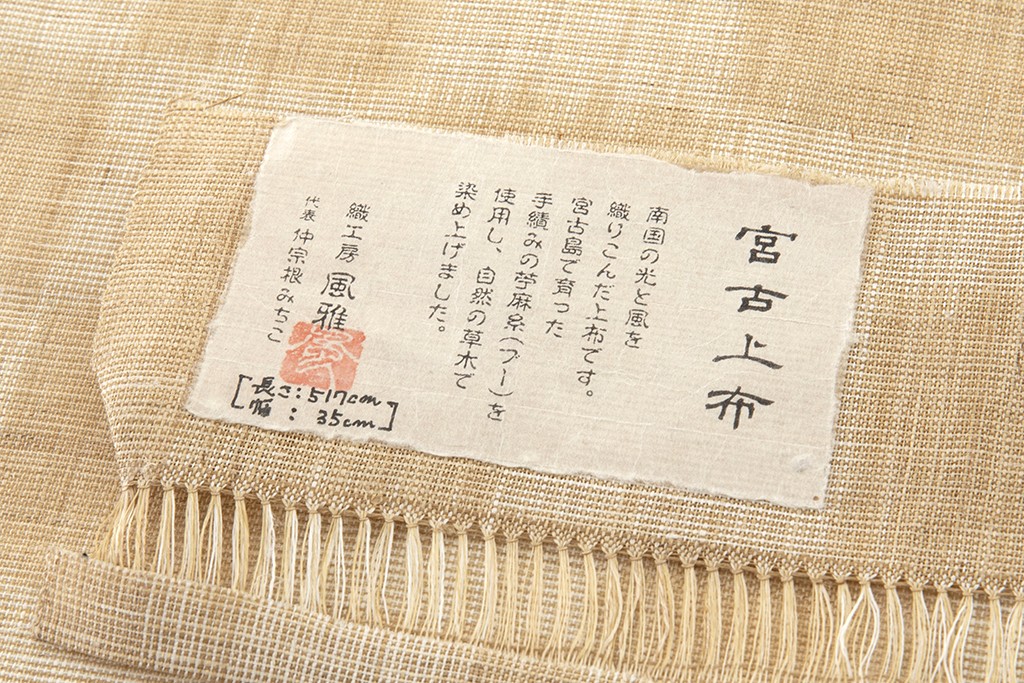 宮古上布
南国の光と風を
織りこんだ上布です。
宮古島で育った
手績みの苧麻糸(ブー)を
使用し、自然の草木で
染め上げました。
織工房 風雅
代表 仲宗根みちこ
[長さ:517cm
幅:35cm]